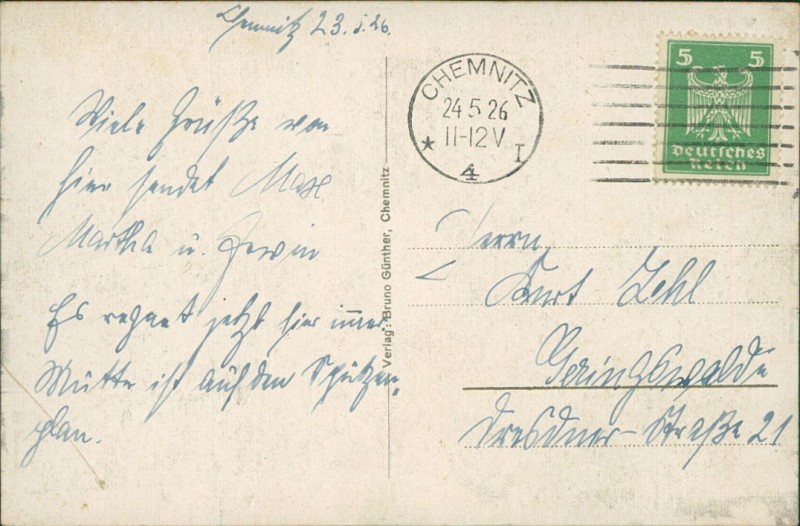 Chemnitz 23.5.26.
Viele Grüße von
hier sendet Max
Martha u. Erwin
Es regnet jetzt hier immer.
Mutter ist auf den Schützen-
plan.
Verlag: Bruno Günther, Chemnitz
CHEMNITZ
24.5.26
11-12 V.
* 4 I
5 5
Deutsches
Reich
Herrn
Kurt
Geringswalde
Dresdner-Straße 21